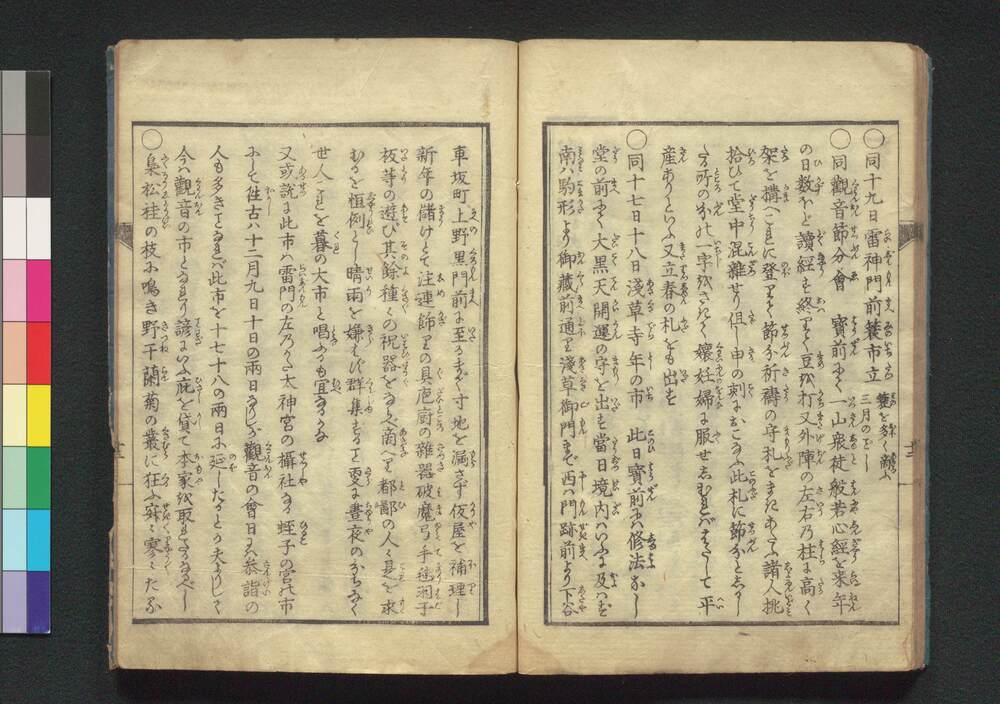 ○同十九日雷神門前蓑市立 蓑を多く鬻ふ 三月のごとし
○同觀音節分會 寶前にて一山衆徒般若心經を来年
の日数ほど讀經す終りて豆を打又外陣の左右乃柱に高く
架を構へこれに登りて節分祈禱の守札をまきあたふ諸人挑
拾ひて堂中混雜せり但し申の刻におこなふ此札に節分と云る
たる所の分の一字をさきて懐妊婦に服せしむればはたして平
産ありといふ又立春の札をも出す
○同十七日十八日淺草寺年の市 此日寶前にハ修法なし
堂の前にて大黒天開運の守を出す當日境内ハいふに及ハず
南ハ駒形より御藏前通り淺草御門まで西ハ門跡前より下谷
車坂町上野黒門前に至るまで寸地を漏さず仮屋を補理し
新年の儲けとて注連飾りの具庖厨の雜器破魔弓手毬羽子
板等の遊び其餘種々の祝器をならべて商へり都鄙の人々是を求
むるを恒例とし晴雨を嫌はず群集する事更に晝夜のわかちなく
世人これを暮の大市と唱ふるも宜なるかな
又或説に此市ハ雷門の左の方太神宮の攝社なる蛭子の宮の市
にして往古ハ十二月九日十日の兩日なりしが觀音の會日ハ参詣の
人も多き事なれバ此市を十七十八の兩日に延したるとか夫よりして
今ハ觀音の市となれり諺にいふ庇を貸て本家を取れたるなるべし
○梟松桂の枝に鳴き野干蘭菊の叢に狂ふ寂々寥々たる